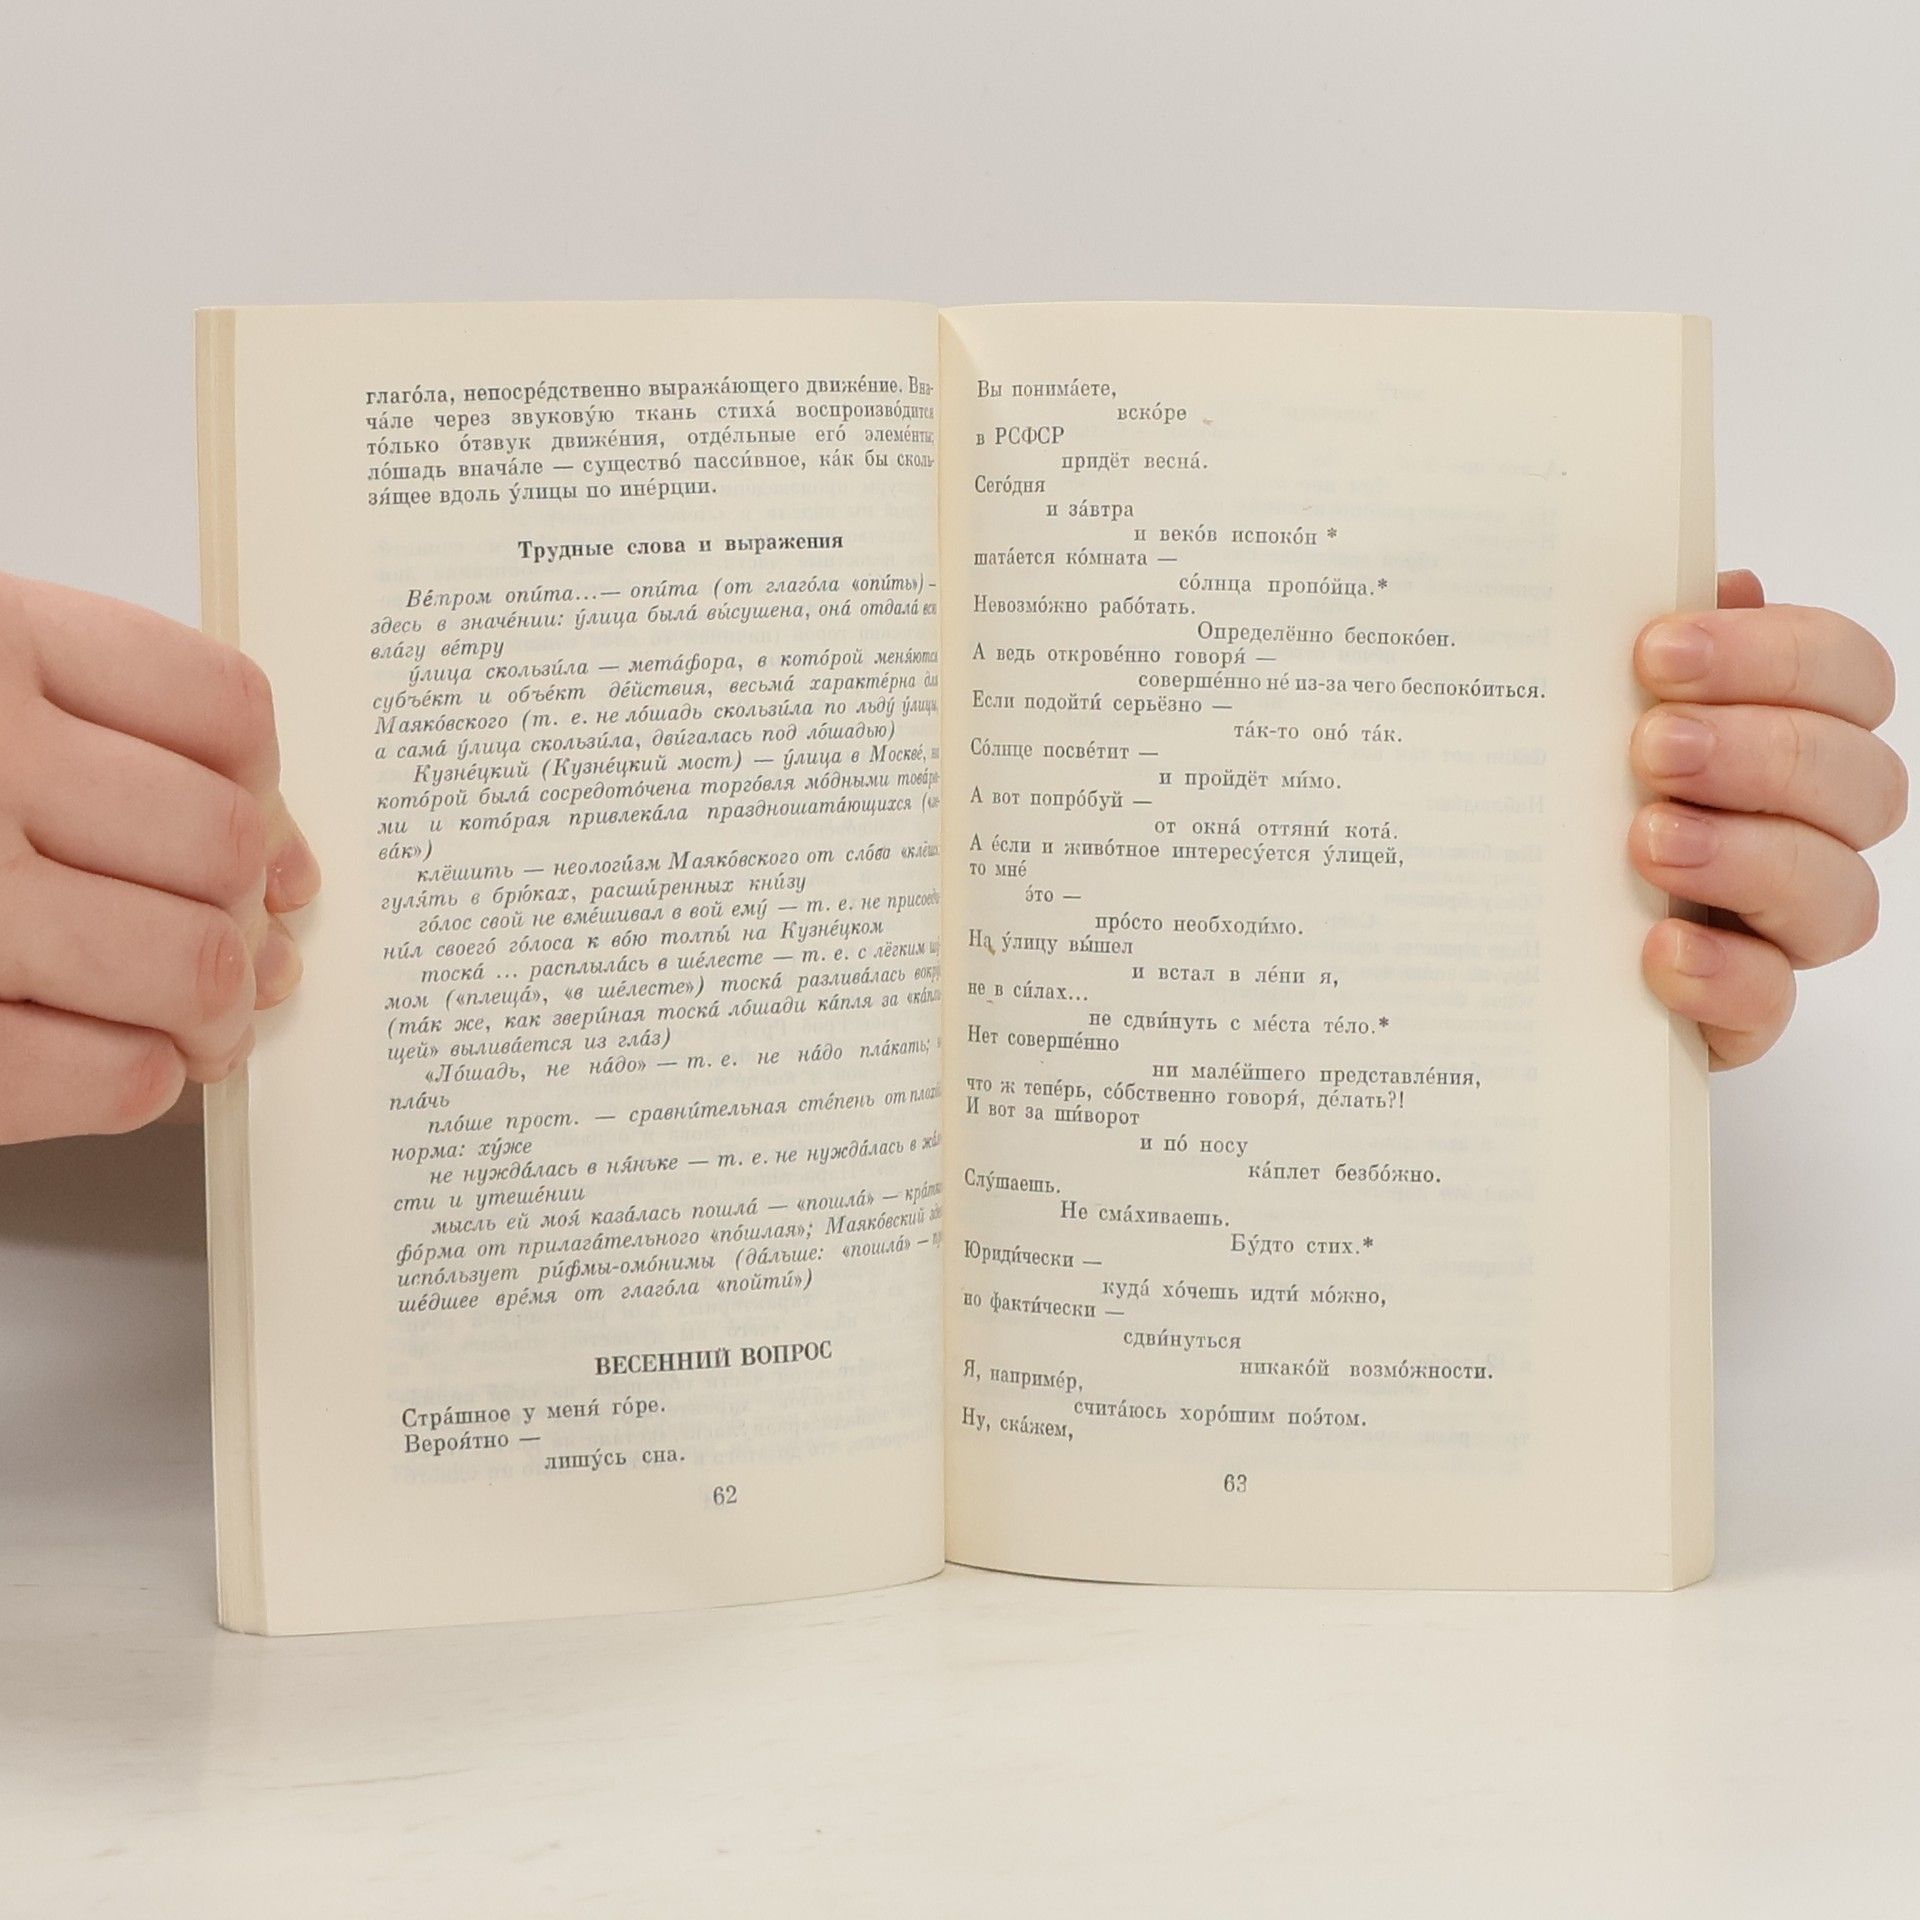 глаго́ла, непосре́дственно выража́ющего движе́ние. Вна-
ча́ле через звукову́ю ткань стиха́ воспроизво́дится
то́лько о́тзвук движе́ния, отде́льные его́ элеме́нты;
ло́шадь внача́ле — существо́ пасси́вное, ка́к бы сколь-
зя́щее вдоль у́лицы по ине́рции.
Трудные слова и выражения
Ве́тром опи́та...— опи́та (от глаго́ла «опи́ть») —
здесь в значе́нии: у́лица была́ вы́сушена, она́ отдала́ всю
вла́гу ве́тру
у́лица скользи́ла — мета́фора, в кото́рой меня́ются
субъе́кт и объе́кт де́йствия, весьма́ характе́рна для
Маяко́вского (т. е. не ло́шадь скользи́ла по льду́ у́лицы,
а сама́ у́лица скользи́ла, дви́галась под ло́шадью)
Кузне́цкий (Кузне́цкий мост) — у́лица в Москве́, на
кото́рой была́ сосредото́чена торго́вля мо́дными това́ра-
ми и кото́рая привлека́ла праздношата́ющихся («зе-
ва́к»)
клёшить — неологи́зм Маяко́вского от сло́ва «клёш»:
гуля́ть в брю́ках, расши́ренных кни́зу
го́лос свой не вме́шивал в вой ему́ — т. е. не присоеди-
ни́л своего́ го́лоса к во́ю толпы́ на Кузне́цком
тоска́ ... расплыла́сь в ше́лесте — т. е. с лёгким шу́-
мом («плеща́», «в ше́лесте») тоска́ разлива́лась вокру́г
(та́к же, как звери́ная тоска́ ло́шади ка́пля за «ка́пли-
щей» вылива́ется из гла́з)
«Ло́шадь, не на́до» — т. е. не на́до пла́кать; не
пла́чь
пло́ше прост. — сравни́тельная сте́пень от плохо́й,
норма: ху́же
не нужда́лась в ня́ньке — т. е. не нужда́лась в жа́ло-
сти и утеше́нии
мысль ей моя́ каза́лась пошла́ — «пошла́» — кра́ткая
фо́рма от прилага́тельного «по́шлая»; Маяко́вский здесь
испо́льзует ри́фмы-омо́нимы (да́льше: «пошла́» — про-
ше́дшее вре́мя от глаго́ла «пойти́»)
ВЕСЕННИЙ ВОПРОС
Стра́шное у меня́ го́ре.
Вероя́тно —
лишу́сь сна.
62
Вы понима́ете,
вско́ре
в РСФСР
придёт весна́.
Сего́дня
и за́втра
и веко́в испоко́н *
шата́ется ко́мната —
со́лнца пропо́йца.*
Невозмо́жно рабо́тать.
Определённо беспоко́ен.
А ведь открове́нно говоря́ —
соверше́нно не́ из-за чего беспоко́иться.
Если подойти́ серьёзно —
та́к-то оно́ та́к.
Со́лнце посве́тит —
и пройдёт ми́мо.
А вот попро́буй —
от окна́ оттяни́ кота́.
А е́сли и живо́тное интересу́ется у́лицей,
то мне́
э́то —
про́сто необходи́мо.
На у́лицу вы́шел
и встал в ле́ни я,
не в си́лах...
не сдви́нуть с ме́ста те́ло.*
Нет соверше́нно
ни мале́йшего представле́ния,
что ж тепе́рь, со́бственно говоря́, де́лать?!
И вот за ши́ворот
и по́ носу
ка́плет безбо́жно.
Слу́шаешь.
Не сма́хиваешь.
Бу́дто стих.*
Юриди́чески —
куда́ хо́чешь идти́ мо́жно,
но факти́чески —
сдви́нуться
никако́й возмо́жности.
Я, наприме́р,
счита́юсь хоро́шим поэ́том.
Ну, ска́жем,
63